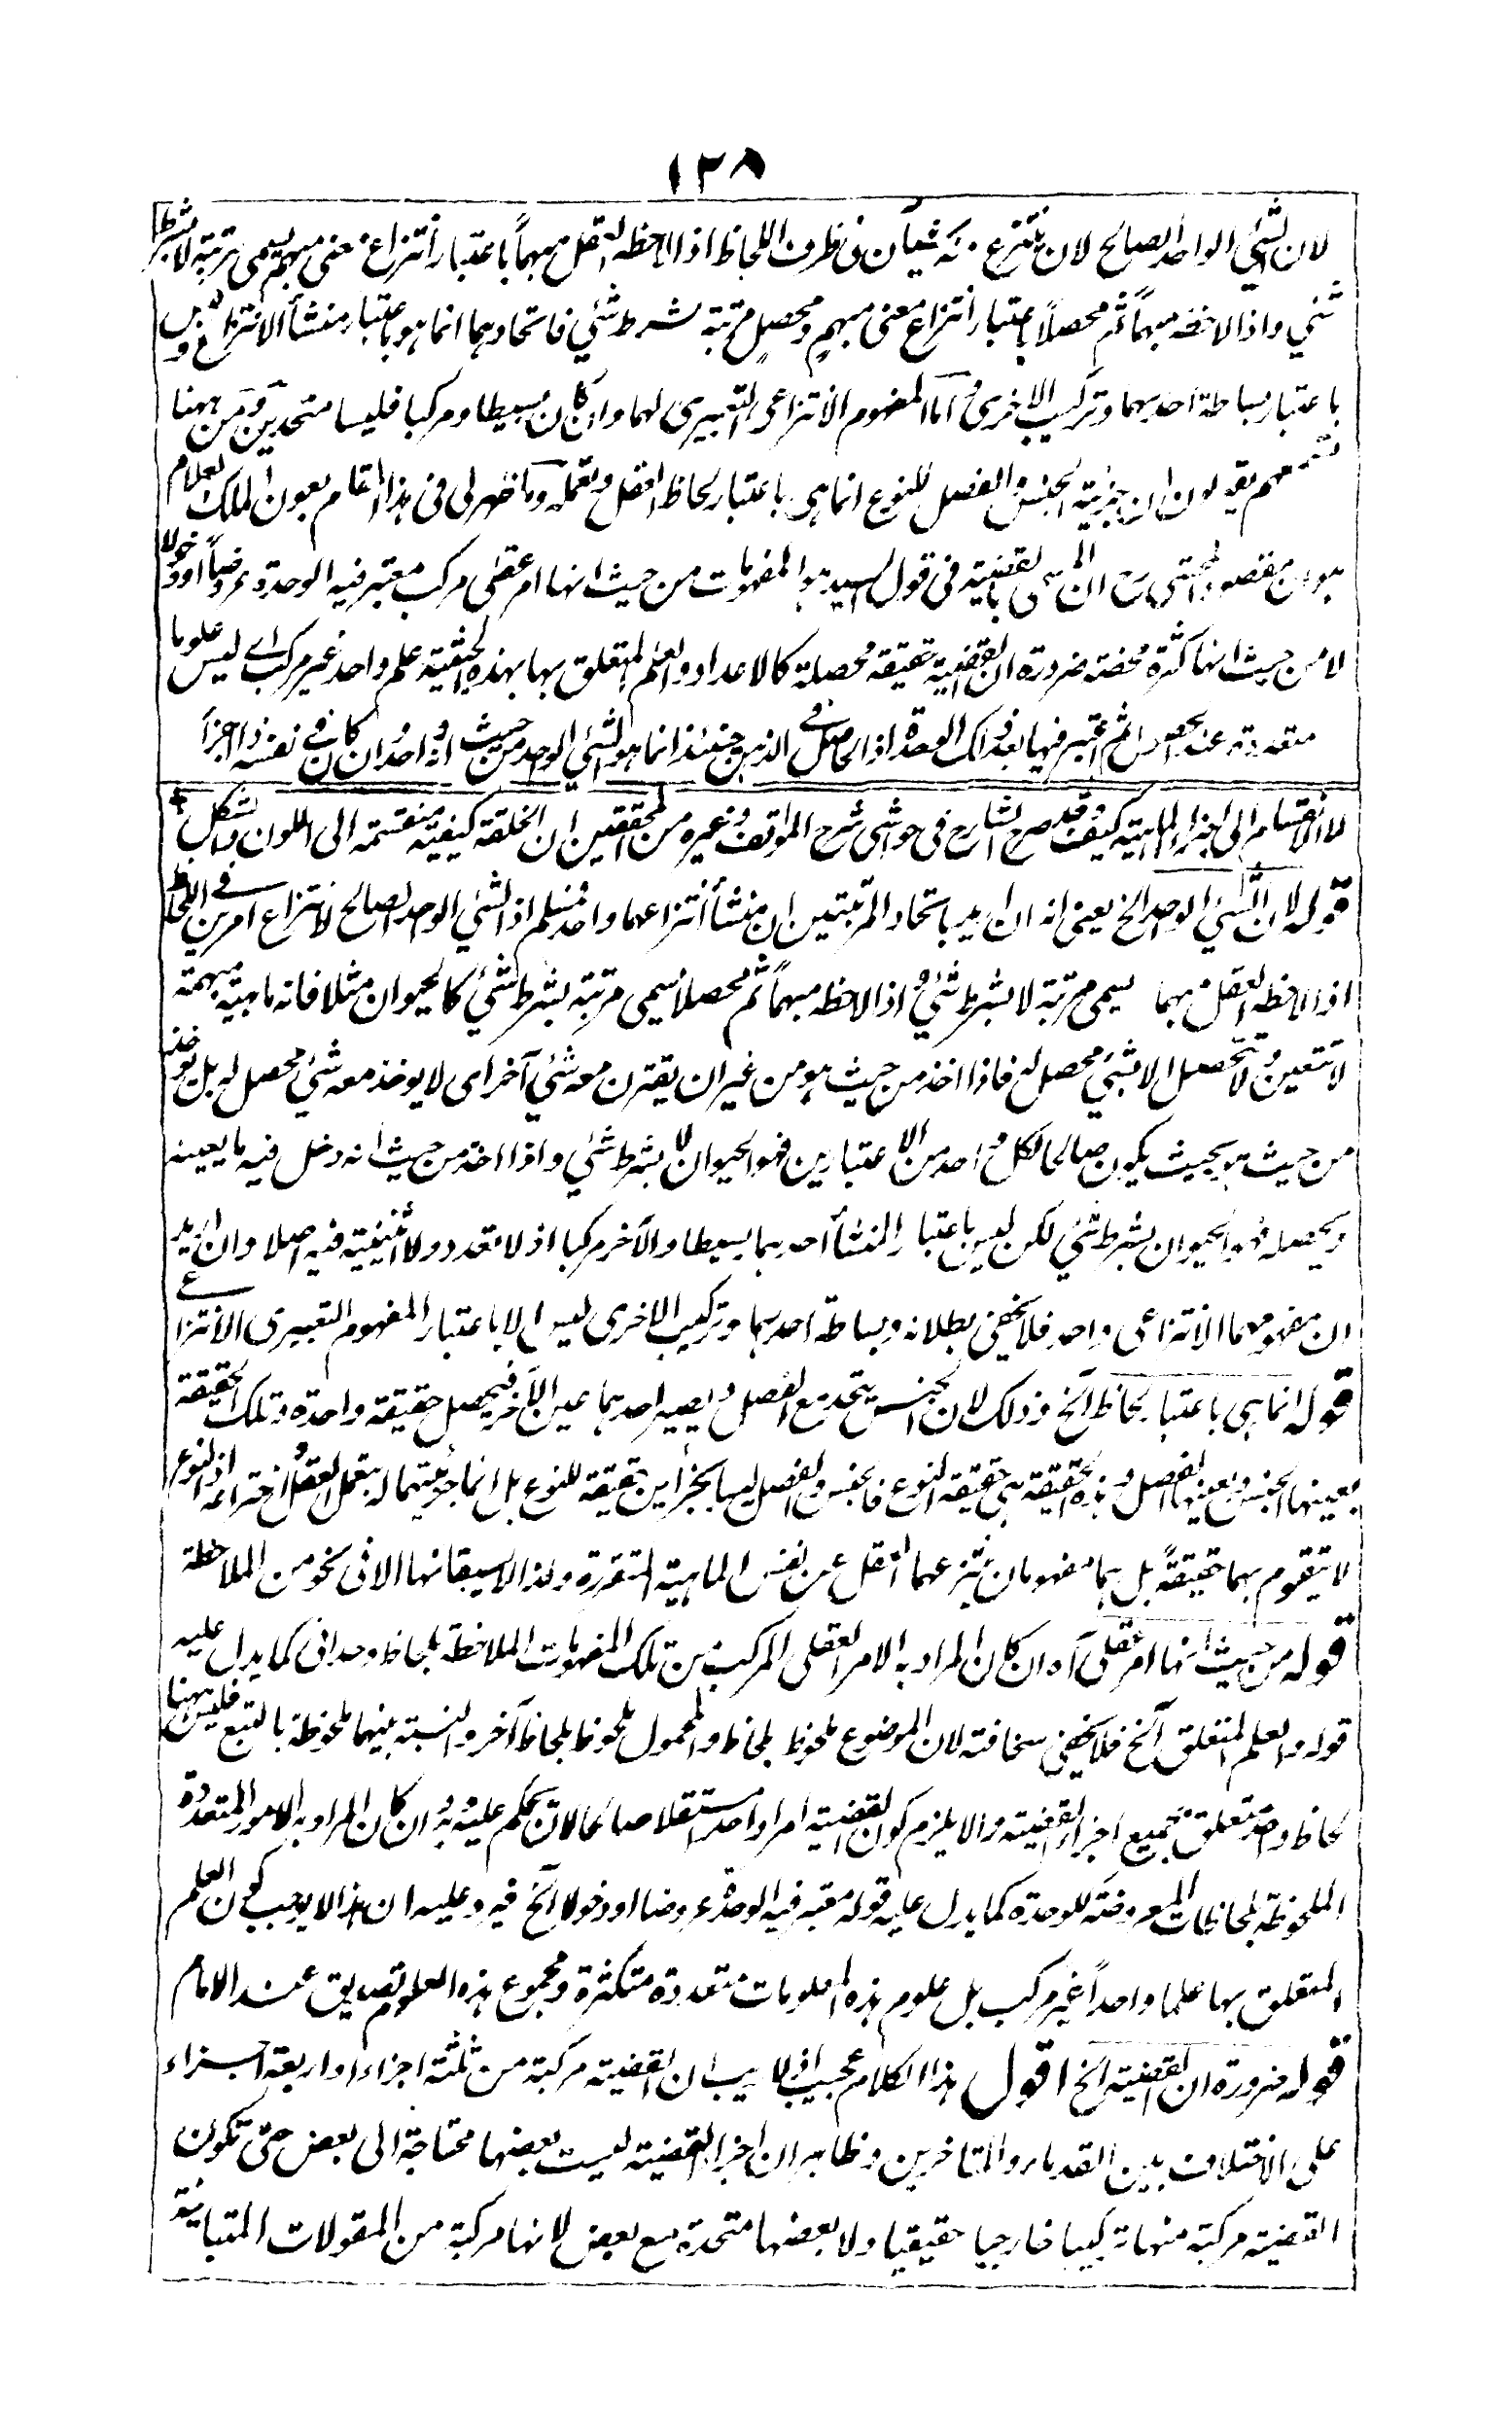 ١٢٨
لان الشئ الواحد الصالح لان ينتزع منه شيآن فى ظرف اللحاظ اذا لاحظه العقل مبهماً باعتبار انتزاع معنى مبهم يسمى مرتبة لا بشرط
شئي واذا لاحظه مبهماً ثم محصلاً باعتبار انتزاع معنى مبهم ومحصل مرتبة بشرط شئي فاتحادهما انما هو باعتبار منشأ الانتزاع وليس
باعتبار بساطة احدهما وتركيب الاخرى واما المفهوم الانتزاعى التعبيرى لهما وان كان بسيطا ومركبا فليسا متحدين ومن ههنا
تسمعهم يقولون ان جزئية الجنس والفصل للنوع انما هى باعتبار لحاظ العقل وتعمله وما ظهر لى فى هذا المقام بعون الملك العلام
هو ان مقصود المحشى رح ان المسمى بالقضية فى قول السيد هو المفهومات من حيث انها امر عقلى مركب معتبر فيه الوحدة عروضاً او دخولا
لا من حيث انها كثرة محضة ضرورة ان القضية حقيقة محصلة كالاعداد والعلم المتعلق بها بهذه الحيثية علم واحد غير مركب اے ليس علوما
متعددة عند الحصول ثم اعتبر فيها بعد ذلك الوحدة اذ الحاصل فى الذهن حينئذ انما هو الشئ الواحد من حيث انه واحد وان كان فى نفسه ذا اجزاً
لا الانقسام الى اجزاء الماهية كيف وقد صرح الشارح فى حواشى شرح المواقف وغيره من المحققين ان الخلقة كيفية منقسمة الى اللون والشكل
قوله لان الشئ الواحد الخ يعنى انه ان اريد باتحاد المرتبتين ان منشأ انتزاعهما واحد فمسلم اذ الشئ الواحد الصالح لانتزاع امرين فى اللحاظ
اذا لاحظه العقل مبهما يسمى مرتبة لا بشرط شئ واذا لاحظه مبهماً ثم محصلاً يسمى مرتبة بشرط شئ كالحيوان مثلا فانه ماهية مبهمة
لا تتعين ولا تتحصل الا بشئ محصل له فاذا اخذ من حيث هو من غير ان يقترن معه شئ آخر اى لا يوخذ معه شئ محصل له بل يوخذ
من حيث هو بحيث يكون صالحا لكل واحد من الاعتبارين فهو الحيوان لا بشرط شئي واذا اخذ من حيث انه دخل فيه ما يعينه
ويحصله فهو الحيوان بشرط شئي لكن ليس باعتبار المنشأ احدهما بسيطا والآخر مركبا اذ لا تعدد ولا اثنينية فيه اصلا وان اريد
ان مفهومهما الانتزاعى واحد فلا يخفى بطلانه وبساطة احدهما وتركيب الاخرى ليس الا باعتبار المفهوم التعبيرى الانتزاعى
قوله انما هى باعتبار لحاظ آلخ وذلك لان الجنس يتحد مع الفصل ويصير احدهما عين الآخر فيحصل حقيقة واحدة وتلك الحقيقة
بعينها الجنس وبعينها الفصل وهذه الحقيقة هى حقيقة النوع فالجنس والفصل ليسا بجزأين حقيقة للنوع بل انما جزئيتهما له بتعمل العقل واختراعه اذ النوع
لا يتقوم بهما حقيقةً بل هما مفهومان ينتزعهما العقل عن نفس الماهية المتقررة ولذا لا يسبقانها الا فى نحو من الملاحظة
قوله من حيث انها امر عقلى آه ان كان المراد به الامر العقلى المركب من تلك المفهومات الملاحظة بلحاظ وحدانى كما يدل عليه
قوله والعلم المتعلق آلخ فلا يخفى سخافته لان الموضوع ملحوظ بلحاظ والمحمول ملحوظ بلحاظ آخر والنسبة بينهما ملحوظة بالتبع فليس ههنا
لحاظ واحد متعلق بجميع اجزاء القضية والا يلزم كون القضية امرا واحدا مستقلا صالحا لان يحكم عليه وبه وان كان المراد به الامور المتعددة
الملحوظة بلحاظات المعروضة للوحدة كما يدل عليه قوله معتبر فيه الوحدة عروضا او دخولا آلخ فيرد عليه ان هذا لا يوجب كون العلم
المتعلق بها علما واحداً غير مركب بل علوم هذه المعلومات متعددة متكثرة ومجموع هذه العلوم تصديق عند الامام
قوله ضرورة ان القضية الخ اقول هذا الكلام عجيب اذ لا ريب ان القضية مركبة من ثلثة اجزاء او اربعة اجزاء
على الاختلاف بين القدماء والمتاخرين وظاهر ان اجزاء القضية ليست بعضها محتاجة الى بعض حتى تكون
القضية مركبة منها تركيبا خارجيا حقيقيا ولا بعضها متحدة مع بعض لانها مركبة من المقولات المتبائنة